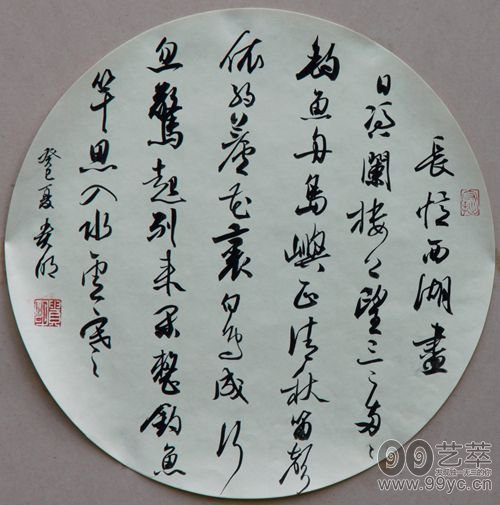 長憶西湖盡
日憑闌樓上望三々兩々
釣魚舟島嶼正清秋笛聲
依約蘆花裏白鳥成行
忽驚起別来閑整釣魚
竿思入水雲寒
癸巳夏
99艺萃
www.99yc.cn